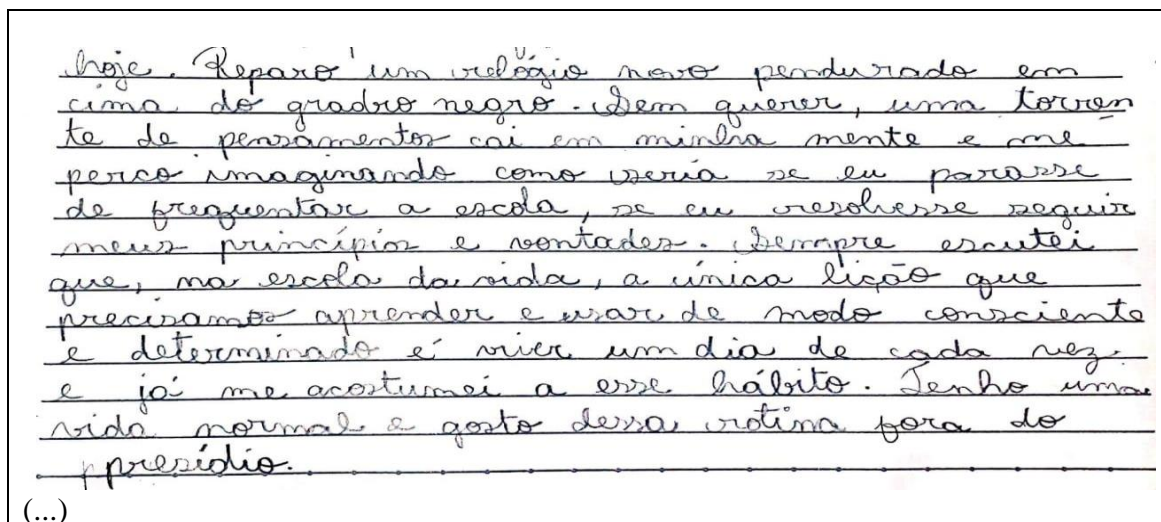 hoje. Reparo um relógio novo pendurado em
cima do gradro negro. Sem querer, uma torren
te de pensamentos cai em minha mente e me
perco imaginando como seria se eu parasse
de frequentar a escola, se eu resolvesse seguir
meus princípios e vontades. Sempre escutei
que, na escola da vida, a única lição que
precisamos aprender e usar de modo consciente
e determinado é viver um dia de cada vez
e já me acostumei a esse hábito. Tenho uma
vida normal e gosto dessa rotina fora do
presídio.
(...)